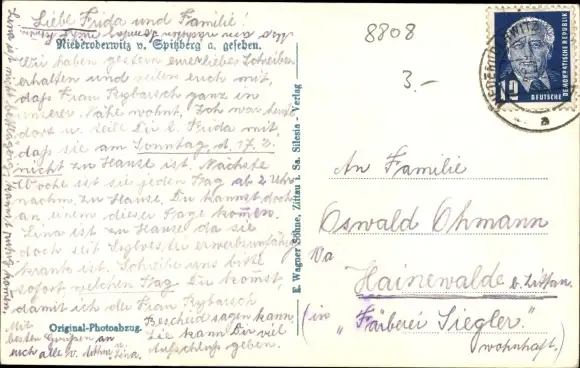 Liebe Frida und Familie!
Niederoderwitz v. Spitzberg a. gesehen.
Wir haben gestern euer liebes Schreiben
erhalten und teilen euch mit,
daß Frau Rybarsch ganz in
unserer Nähe wohnt. Ich war heute
dort u. teile Dir l. Frida mit,
daß sie am Sonntag d. 17. 2.
nicht zu Hause ist. Nächste
Woche ist sie jeden Tag ab 2 Uhr
nachm. zu Hause. Du kannst doch
an einem dieser Tage kom̅en.
Lina ist zu Hause da sie
doch seit
krank ist. Schreibe uns bitte
sofort welchen Tag Du kom̅st
damit ich der Frau Rybarsch
Bescheid sagen kann,
sie kann Dir viel
Aufschluß geben.
Mit
besten Grüßen an
euch alle v. Arthur u. Lina.
Original-Photoabzug.
E. Wagner Söhne, Zittau i. Sa. Silesia - Verlag
8808
3.-
DEUTSCHE DEMOKRATISCHE REPUBLIK
12
DEUTSCHE
a
An Familie
Oswald Ohmann
Hainewalde b. Zittau.
(in „Färberei Siegler."
wohnhaft.)